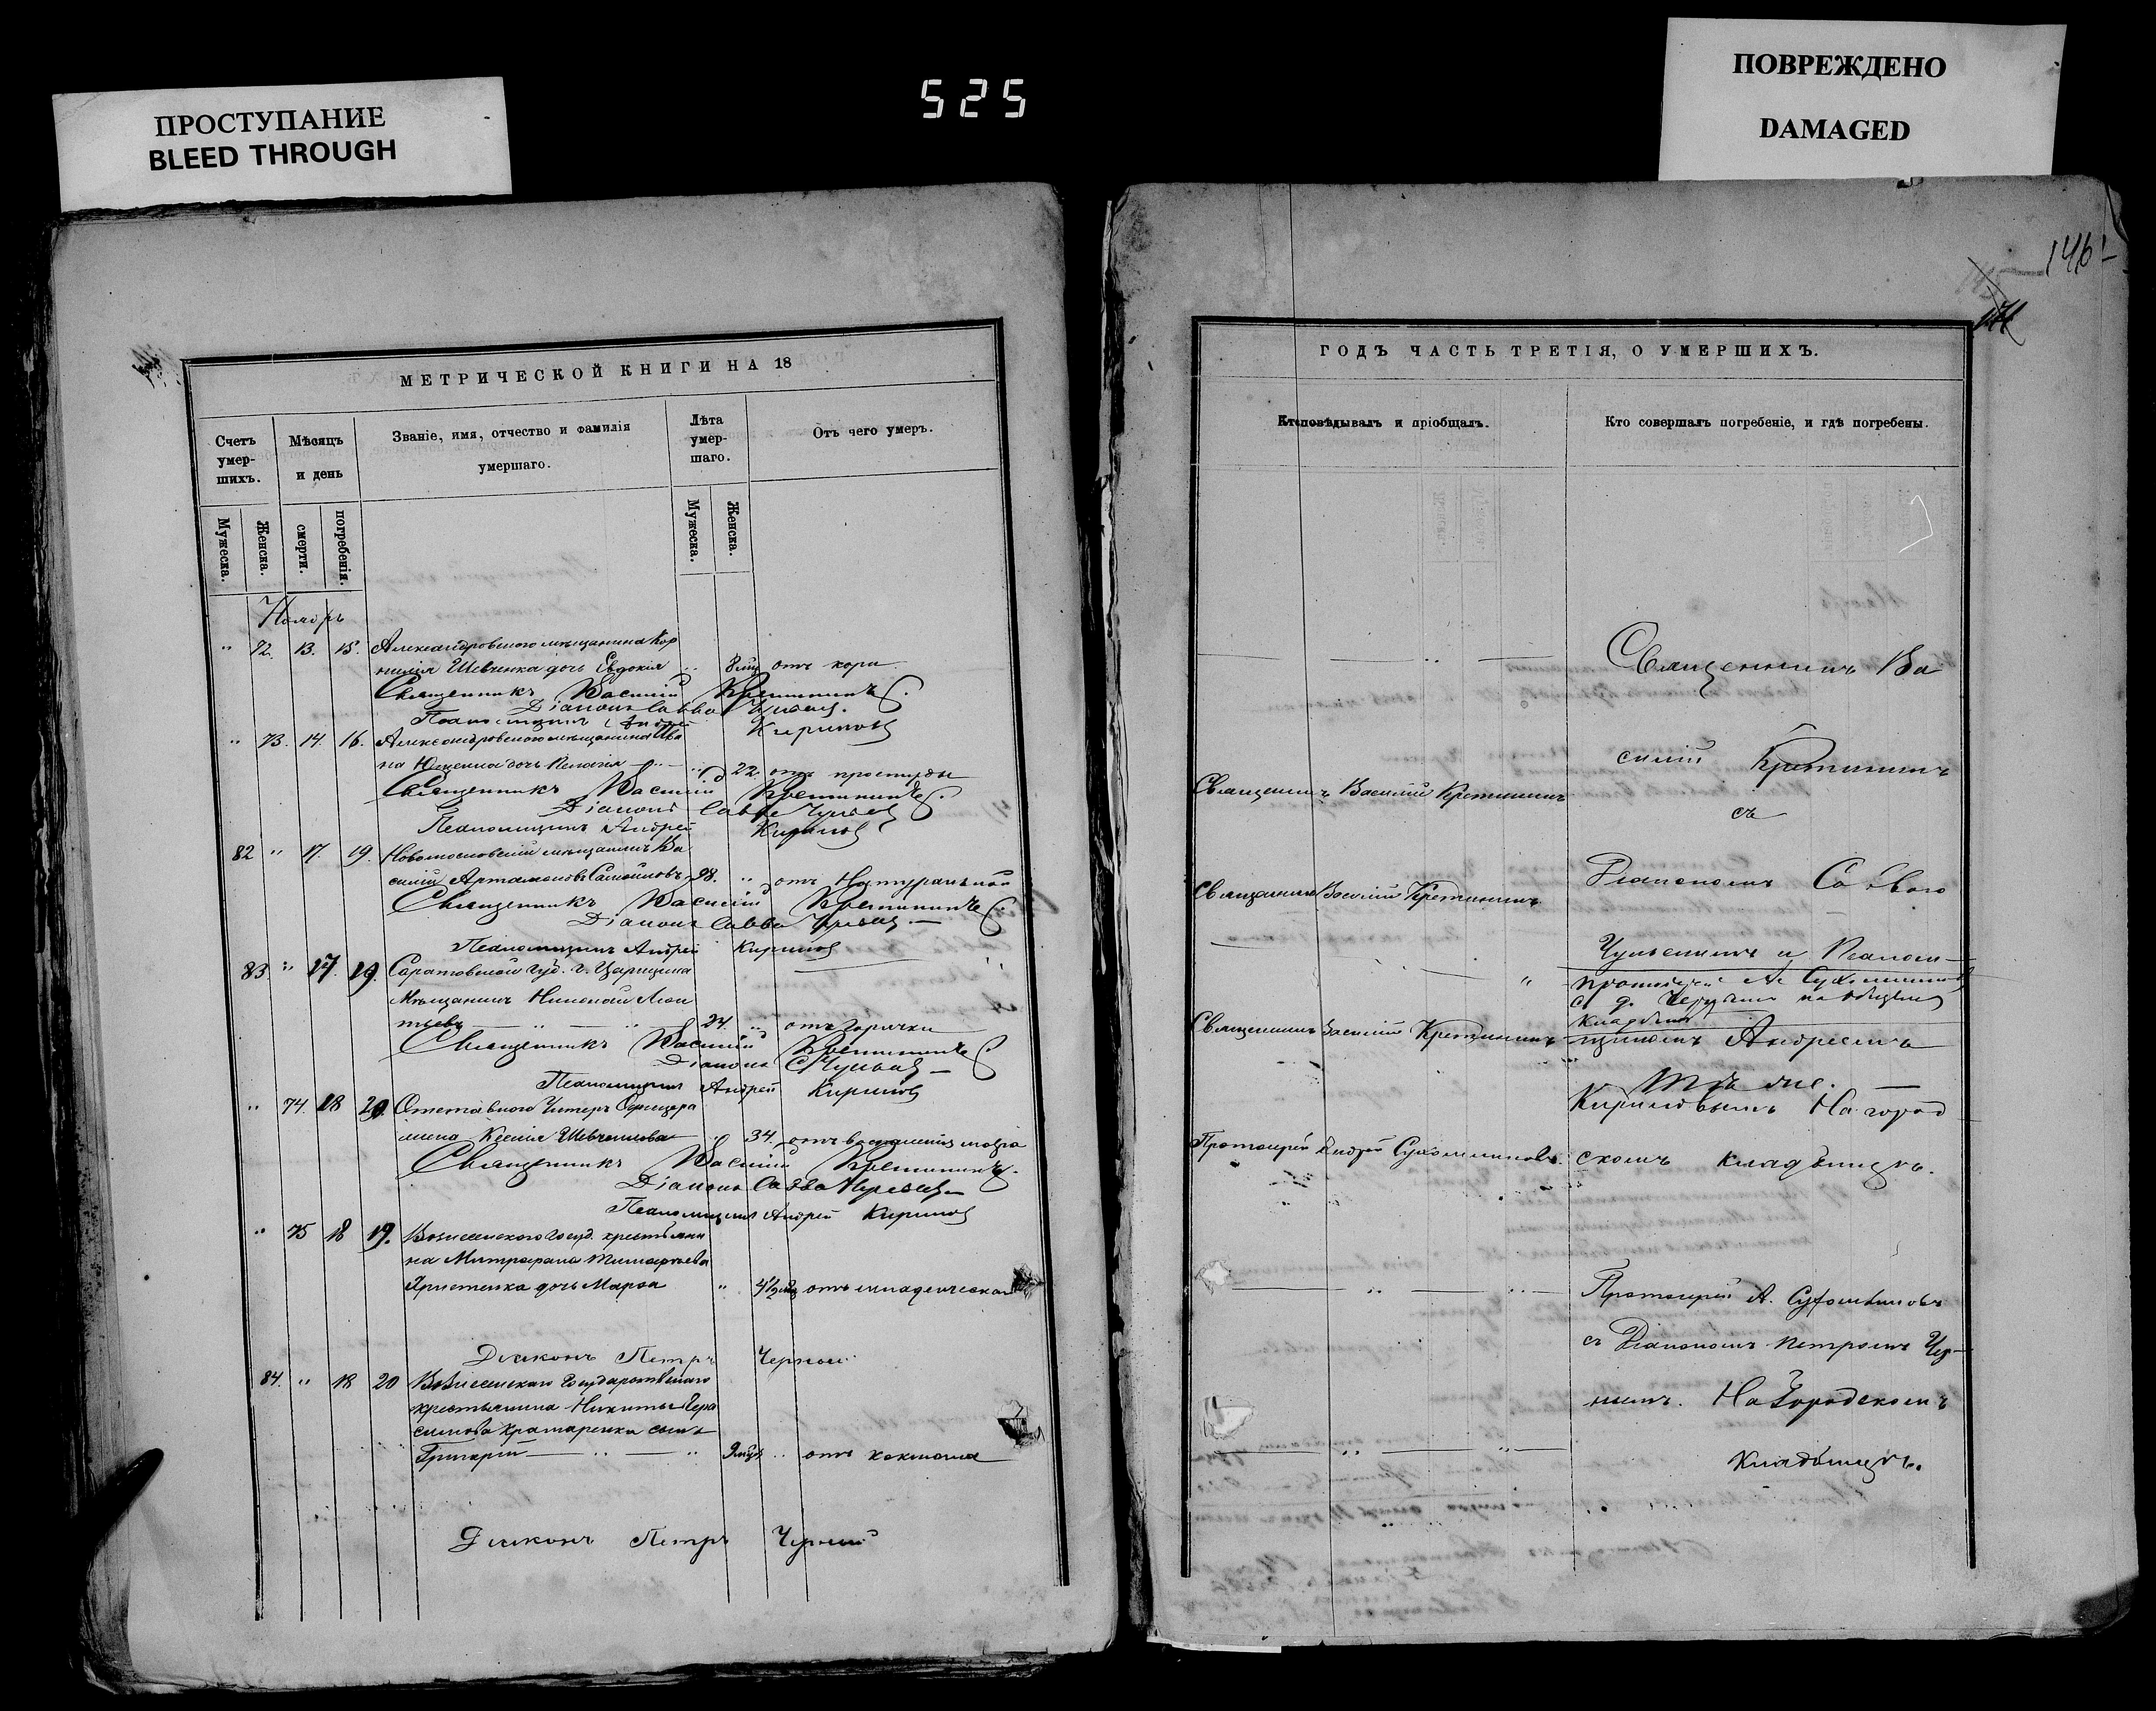 ПРОСТУПАНИЕ
BLEED THROUGH
525
ПОВРЕЖДЕНО
DAMAGED
146
МЕТРИЧЕСКОЙ КНИГИ НА 18
Счетъ умер-шихъ.
Мѣсяцъ и день
Званіе, имя, отчество и фамилія умершаго.
Лѣта умер-шаго.
Отъ чего умеръ.
Мужеска.
Женска.
смерти.
погребенія.
Мужеска.
Женска.
Ноябрь
" 72. 13. 15. Александровского мѣщанина Кор
нилія Шевченка дочь Евдокія " 8 мц отъ кори
Священникъ Василій Кретининъ
Діаконъ Савва
Псаломщикъ Андрей Кириловъ
" 73. 14. 16. Александровского мѣщанина Ива
на дочь Пелагія " 22. отъ простуды
Священникъ Василій Кретининъ
Діаконъ Савва
Псаломщикъ Андрей Кириловъ
82 " 17. 19. Новомосковскій мѣщанинъ Ва
силій Артамоновъ 98. " отъ Натуральной
Священникъ Василій Кретининъ
Діаконъ Савва
Псаломщикъ Андрей Кириловъ
83. " 17. 19. Саратовской губ. г. Царицына
Мѣщанинъ Николай Леон
тьевъ " " 24. " отъ горячки
Священникъ Василій Кретининъ
Діаконъ С
Псаломщикъ Андрей Кириловъ
" 74. 18 20. Отставного Унтеръ Офицера
жена Ксенія Шевченкова " 34. отъ воспаленія мозга
Священникъ Василій Кретининъ
Діаконъ Савва
Псаломщикъ Андрей Кириловъ
" 75 18 19. Вознесенского Госуд. крестьяни
на Митрофана Тимофѣева
Христенка дочь Марѳа " 4½ мц отъ младенческой
Діаконъ Петръ Черный
84. " 18 20 Вознесенскаго Государственнаго
крестьянина Никиты Гера
симова Крамаренка сынъ
Григорій " " 9 мцъ " отъ коклюша
Діаконъ Петръ Черный
ГОДЪ ЧАСТЬ ТРЕТІЯ, О УМЕРШИХЪ.
исповѣдывалъ и пріобщалъ.
Кто совершалъ погребеніе, и гдѣ погребены.
Священникъ Ва
силій Кретининъ
Священникъ Василій Кретининъ
съ
Діакономъ Саввою
Священникъ Василій Кретининъ
и Псалом-
протоіерей А. Сухомлиновъ
с д. на общемъ
кладбищѣ
Священникъ Василій Кретининъ
щикомъ Андреемъ
Тѣ же.
Кириловымъ На город
Протоіерей Андрей Сухомлиновъ.
скомъ кладбищѣ.
Протоіерей А. Сухомлиновъ
съ Діакономъ Петромъ Чер-
нымъ. На Городскомъ
кладбищѣ.